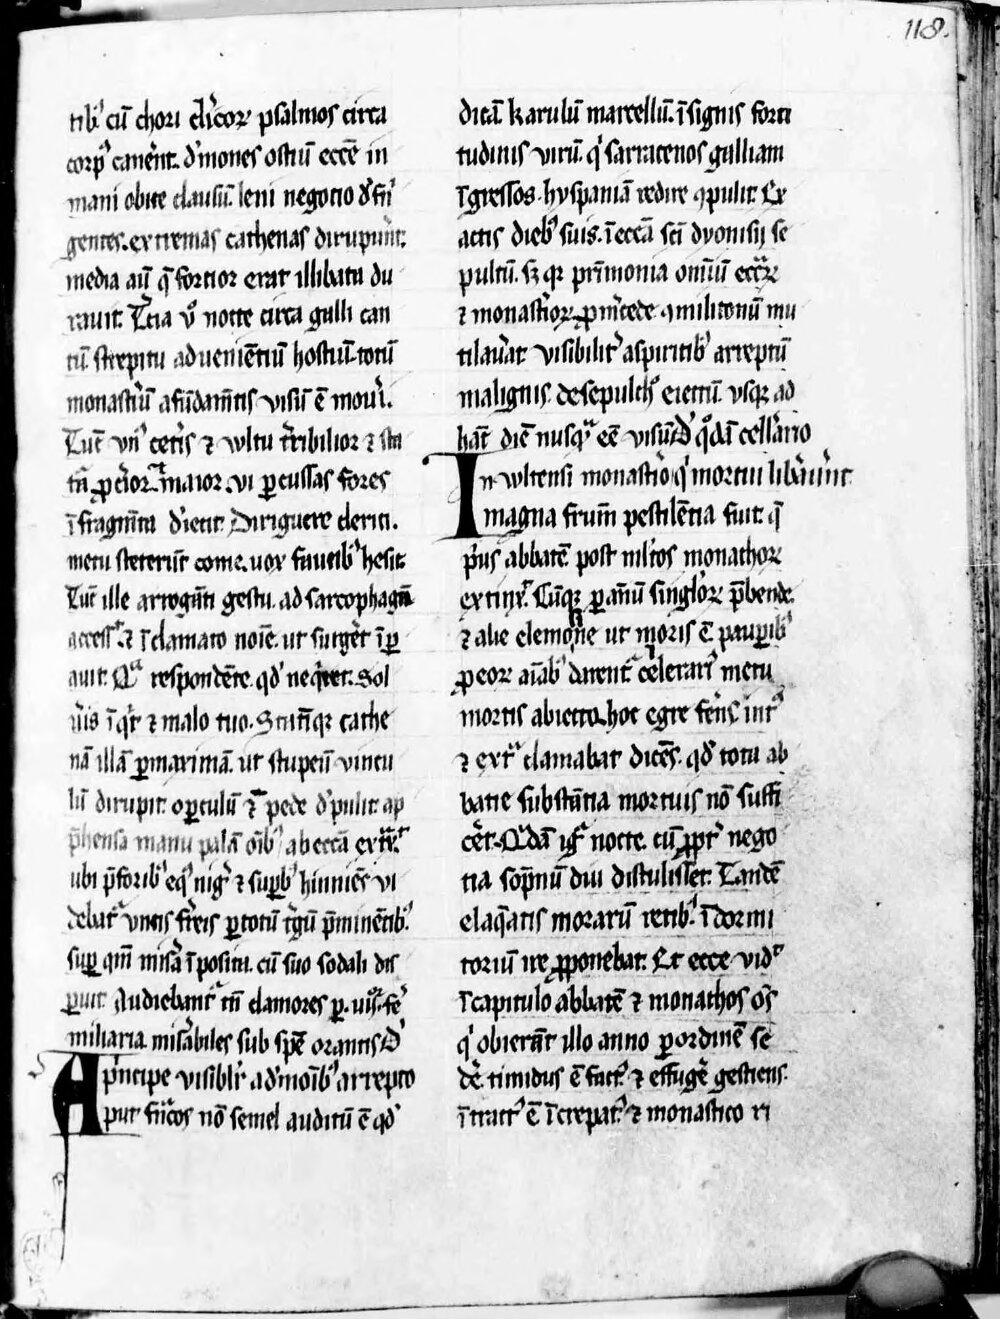 118.
tib⁹ cū chori cl'icoꝝ psalmos circa
corp⁹ canēnt. d'mones ostiū eccē in
mani obice clausū. leni negotio ɔ̄frī
gentes. extremas cathenas dirupūnt.
media aū q̄ fortior erat illibata du
rauit. Tcia ů nocte circa galli can
tū strepitu aduenientiū hostiū totū
monastiū afūdam̄tis uisū ē mouͥ.
Tūc un⁹ cet͛is ⁊ wltu t͛ribilior ⁊ sta
tͣ ꝓcior maior. ui ꝑcussas fores
ī fragm̄ta d'iecit. Diriguere cleri.
metu steterūt come. uox faucib⁹ hesit
Tūc ille arrogāti gestu. ad sarcophagū
access͛. ⁊ īclamato noīe. ut surgēt īꝑ
auit. Qͣ respondēte. qd' neq̄ret. Sol
u͛is īqͥt ⁊ malo tuo. Statīqꝫ cathe
nā illā ꝑmaximā. ut stupeū uincu
lū dirupit. opculū ⁊ pede d'pulit. ap
p̄hensa manu palā oīb⁹ ab eccā extͣx.
ubi p̄forib⁹ eq⁹ nig͛ ⁊ supb⁹ hinniēs ui
debat͛ uncis f͛reis ꝑtotū t͛gū p̄minētib⁹.
sup qm̄ mis͛a īposita. cū suo sodali dis
ꝑuit. Audiebant͛ tn̄ clamores ꝑ. uiͦr. fe͛
miliaria. mis͛abiles sub spē orantis. D'
Apͥncipe uisiblr̄ ad'moīb⁹ arrepto
put frͣcos nō semel auditū ē qd'
dicā karulū marcellū. īsignis forti
tudinis uirū. qͥ sarracenos galliam
īgressos. hyspaniā redire ꝯpulit. Ex
actis dieb⁹ suis. ī eccā scī dyonisij se
pultū. sꝫ qꝛ prͥmonia omīū eccaꝝ
⁊ monastioꝝ ꝓm͛cede ꝯmilitonū mu
tilau͛at uisibilit͛ aspiritib⁹ arreptū
malignis. desepulch͛o eiectū. usqꝫ ad
hāc diē nusqͣ eē uisū. D' qͦdā cell͛ario
In wltensi monastio qͥ mortui lib͛auūnt
magna frūm pestilētia fuit. q̄
pͥus abbatē post ml̄tos monachoꝝ
extinx͛. Cūqꝫ ꝑanū singloꝝ p̄bende.
⁊ alie elemosine ut moris ē pauꝑib⁹
ꝓeoꝝ aīab⁹ darent͛ celerari⁹ metu
mortis abiecto. hoc egre ferēs intͣ
⁊ extͣ clamabat dicēs. qd' tota ab
batie substātia mortuis nō suffi
cēt. Qͣdā igͥ nocte. cū ꝓpt͛ nego
tia sopnū diu distulisset. Tandē
elaq̄atis morarū retib⁹. īdormi
toriū ire ꝓponebat. Et ecce uidͭ
ī capitulo abbatē ⁊ monachos oēs
qͥ obierāt illo anno ꝑordinē se
de͛. timidus ē fact⁹. ⁊ effuge͛ gestiens.
ītract⁹ ē īcrepat⁹. ⁊ monastico ri